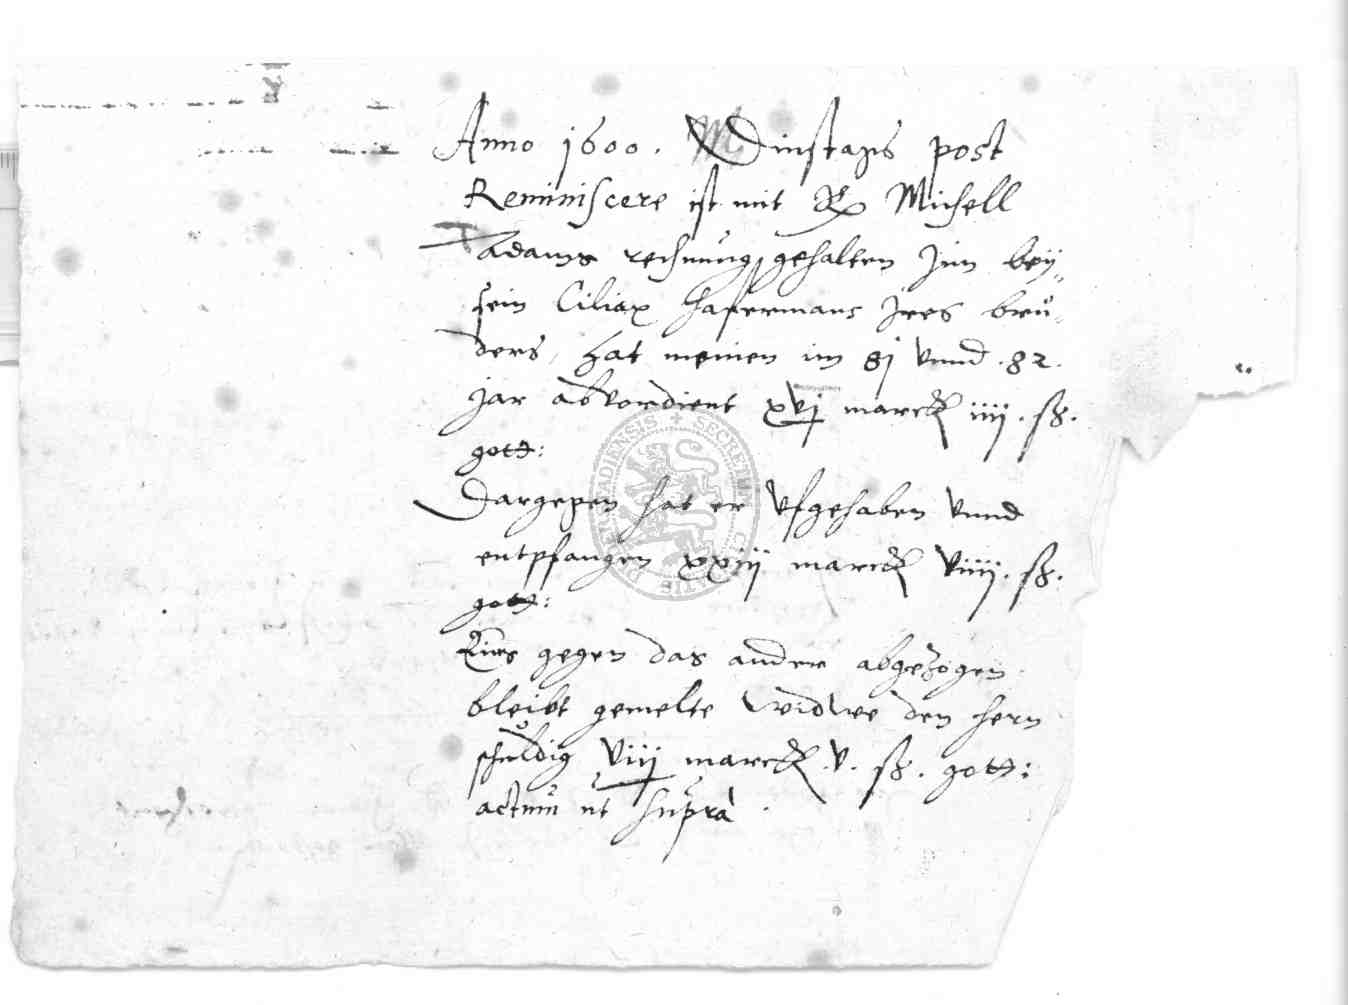 Anno 1600. Dinstags post
Reminiscere ist mit Michell
Adams rechnung gehalten Jnn bey„
sein Ciliax Hafermans Jres brů„
ders, hat meinen im 81 vnnd .82.
jar abvordient xvj marck iiij. sz.
gott:
Dargegen hat er vfgehaben vnnd
entpfangen xxiij marck viiij. sz.
gott:
Eins gegen das ander abgezogen
bleibt gemelte widwe den hern
schůldig viij marck .v. sz. gott:
actum ut supra.
SECRETUM CIVITATIS